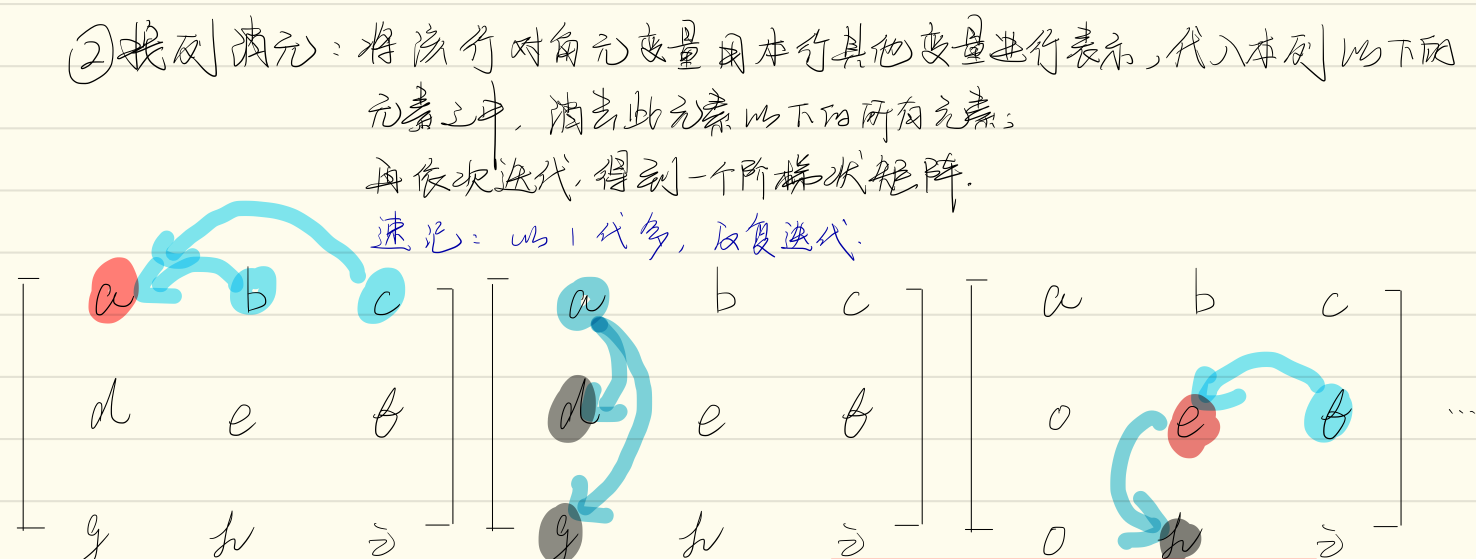 ②按列消元：将该行对角元变量用本行其他变量进行表示，代入本列以下的
元素之中，消去此元素以下的所有元素；
再依次迭代，得到一个阶梯状矩阵．
速记：以1代多，反复迭代．
a b c a b c a b c
d e f d e f 0 e f …
g h i g h i 0 h i